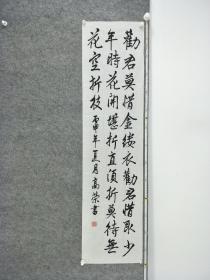 勸君莫惜金縷衣勸君惜取少
年時花開堪折直須折莫待無
花空折枝 丙申年夏月高榮書